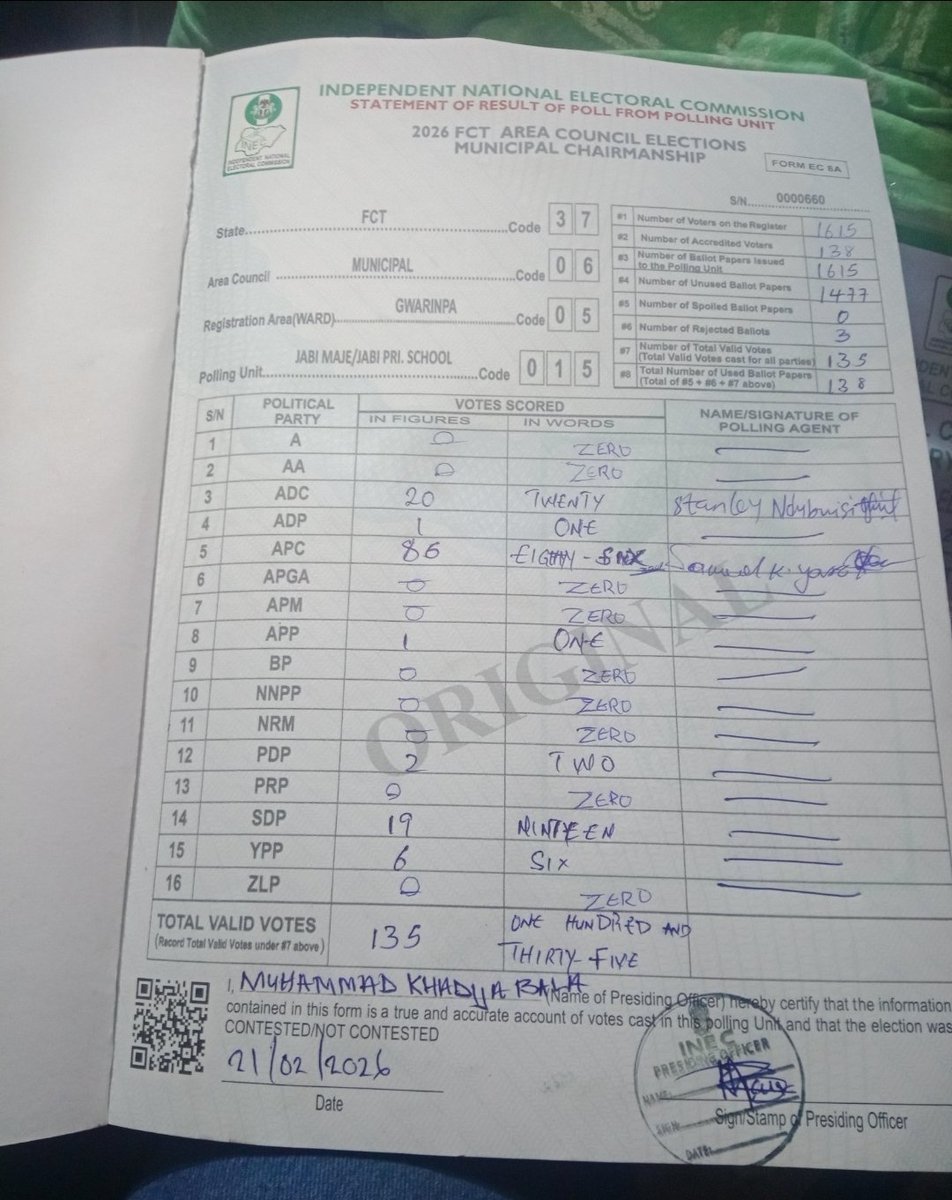 INDEPENDENT NATIONAL ELECTORAL COMMISSION
STATEMENT OF RESULT OF POLL FROM POLLING UNIT
2026 FCT AREA COUNCIL ELECTIONS
MUNICIPAL CHAIRMANSHIP
FORM EC 8A
INEC
INDEPENDENT NATIONAL
ELECTORAL COMMISSION
S/N..... 0000660
State FCT Code 3 7
Area Council MUNICIPAL Code 0 6
Registration Area(WARD) GWARINPA Code 0 5
Polling Unit JABI MAJE/JABI PRI. SCHOOL Code 0 1 5
#1 Number of Voters on the Register 1615
#2 Number of Accredited Voters 138
#3 Number of Ballot Papers Issued to the Polling Unit 1615
#4 Number of Unused Ballot Papers 1477
#5 Number of Spoiled Ballot Papers 0
#6 Number of Rejected Ballots 3
#7 Number of Total Valid Votes (Total Valid Votes cast for all parties) 135
#8 Total Number of Used Ballot Papers (Total of #5 + #6 + #7 above) 138
S/N POLITICAL PARTY VOTES SCORED NAME/SIGNATURE OF POLLING AGENT
IN FIGURES IN WORDS
1 A 0 ZERO
2 AA 0 ZERO
3 ADC 20 TWENTY Stanley
4 ADP 1 ONE
5 APC 86 EIGHTY-SIX
6 APGA 0 ZERO
7 APM 0 ZERO
8 APP 1 ONE
9 BP 0 ZERO
10 NNPP 0 ZERO
11 NRM 0 ZERO
12 PDP 2 TWO
13 PRP 0 ZERO
14 SDP 19 NINTEEN
15 YPP 6 SIX
16 ZLP 0 ZERO
ORIGINAL
TOTAL VALID VOTES 135 ONE HUNDRED AND
(Record Total Valid Votes under #7 above) THIRTY-FIVE
I, MUHAMMAD KHADIJA BALA (Name of Presiding Officer) hereby certify that the information
contained in this form is a true and accurate account of votes cast in this polling Unit and that the election was
CONTESTED/NOT CONTESTED
21/02/2026
Date
INEC
PRESIDING OFFICER
NAME:
SIGN:
DATE:
Sign/Stamp of Presiding Officer